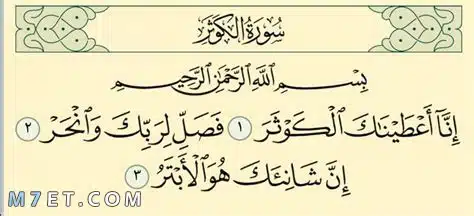 سُورَةُ الْكَوْثَرِ
بِسْمِ اللَّهِ الرَّحْمَٰنِ الرَّحِيمِ
إِنَّا أَعْطَيْنَاكَ الْكَوْثَرَ ١ فَصَلِّ لِرَبِّكَ وَانْحَرْ ٢
إِنَّ شَانِئَكَ هُوَ الْأَبْتَرُ ٣
M7ET.COM